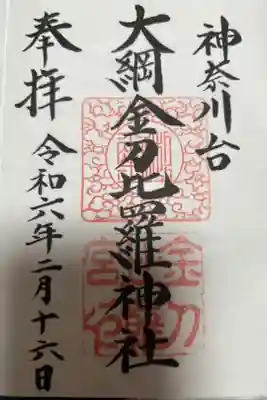 神奈川台
大綱金刀比羅神社
奉拝
令和六年二月十六日